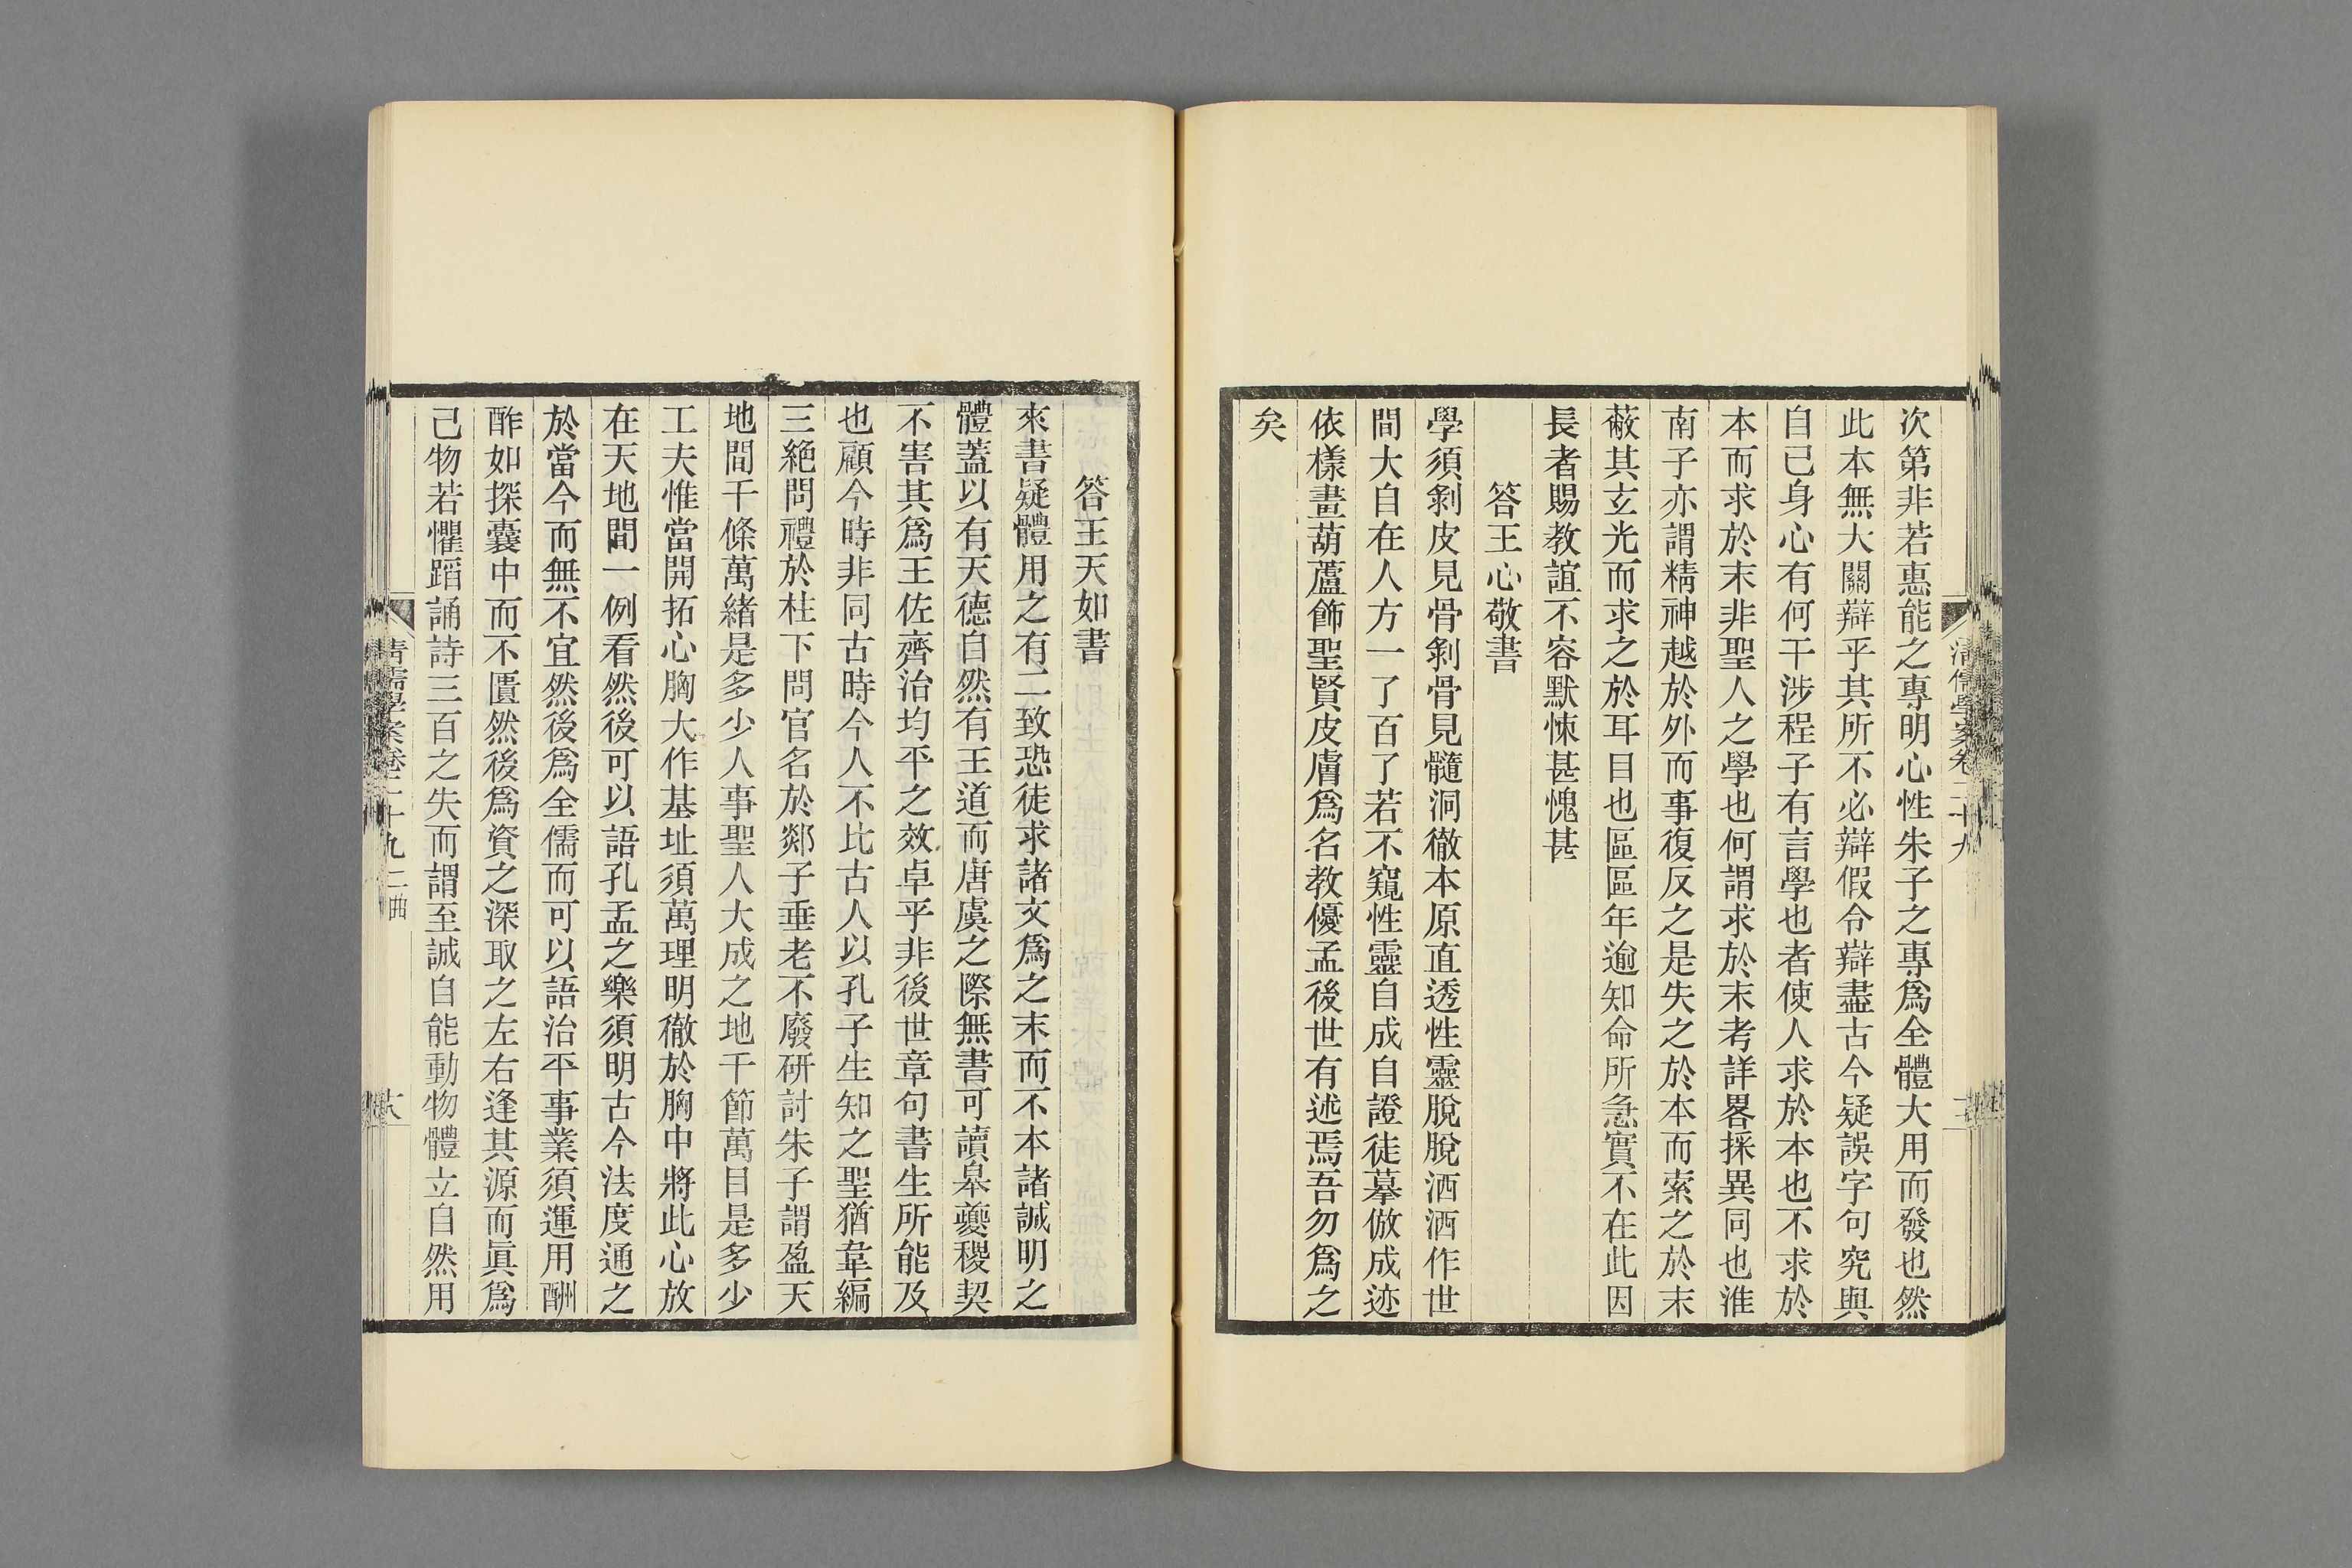 次第非若惠能之專明心性朱子之專爲全體大用而發也然
此本無大關辯乎其所不必辯假令辯盡古今疑誤字句究與
自己身心有何干涉程子有言學也者使人求於本也不求於
本而求於末非聖人之學也何謂求於末考詳畧採異同也淮
南子亦謂精神越於外而事復反之是失之於本而索之於末
蔽其玄光而求之於耳目也區區年逾知命所急實不在此因
長者賜教誼不容默悚甚愧甚
答王心敬書
學須剝皮見骨剝骨見髓洞徹本原直透性靈脫脫洒洒作世
間大自在人方一了百了若不窺性靈自成自證徒摹倣成迹
依樣畫葫蘆飾聖賢皮膚爲名教優孟後世有述焉吾勿爲之
矣
答王天如書
來書疑體用之有二致恐徒求諸文爲之末而不本諸誠明之
體蓋以有天德自然有王道而唐虞之際無書可讀皋夔稷契
不害其爲王佐齊治均平之效卓乎非後世章句書生所能及
也顧今時非同古時今人不比古人以孔子生知之聖猶韋編
三絕問禮於柱下問官名於郯子垂老不廢研討朱子謂盈天
地間千條萬緒是多少人事聖人大成之地千節萬目是多少
工夫惟當開拓心胸大作基址須萬理明徹於胸中將此心放
在天地間一例看然後可以語孔孟之樂須明古今法度通之
於當今而無不宜然後爲全儒而可以語治平事業須運用酬
酢如探囊中而不匱然後爲資之深取之左右逢其源而眞爲
己物若懼蹈誦詩三百之失而謂至誠自能動物體立自然用
清儒學案卷二十九二曲